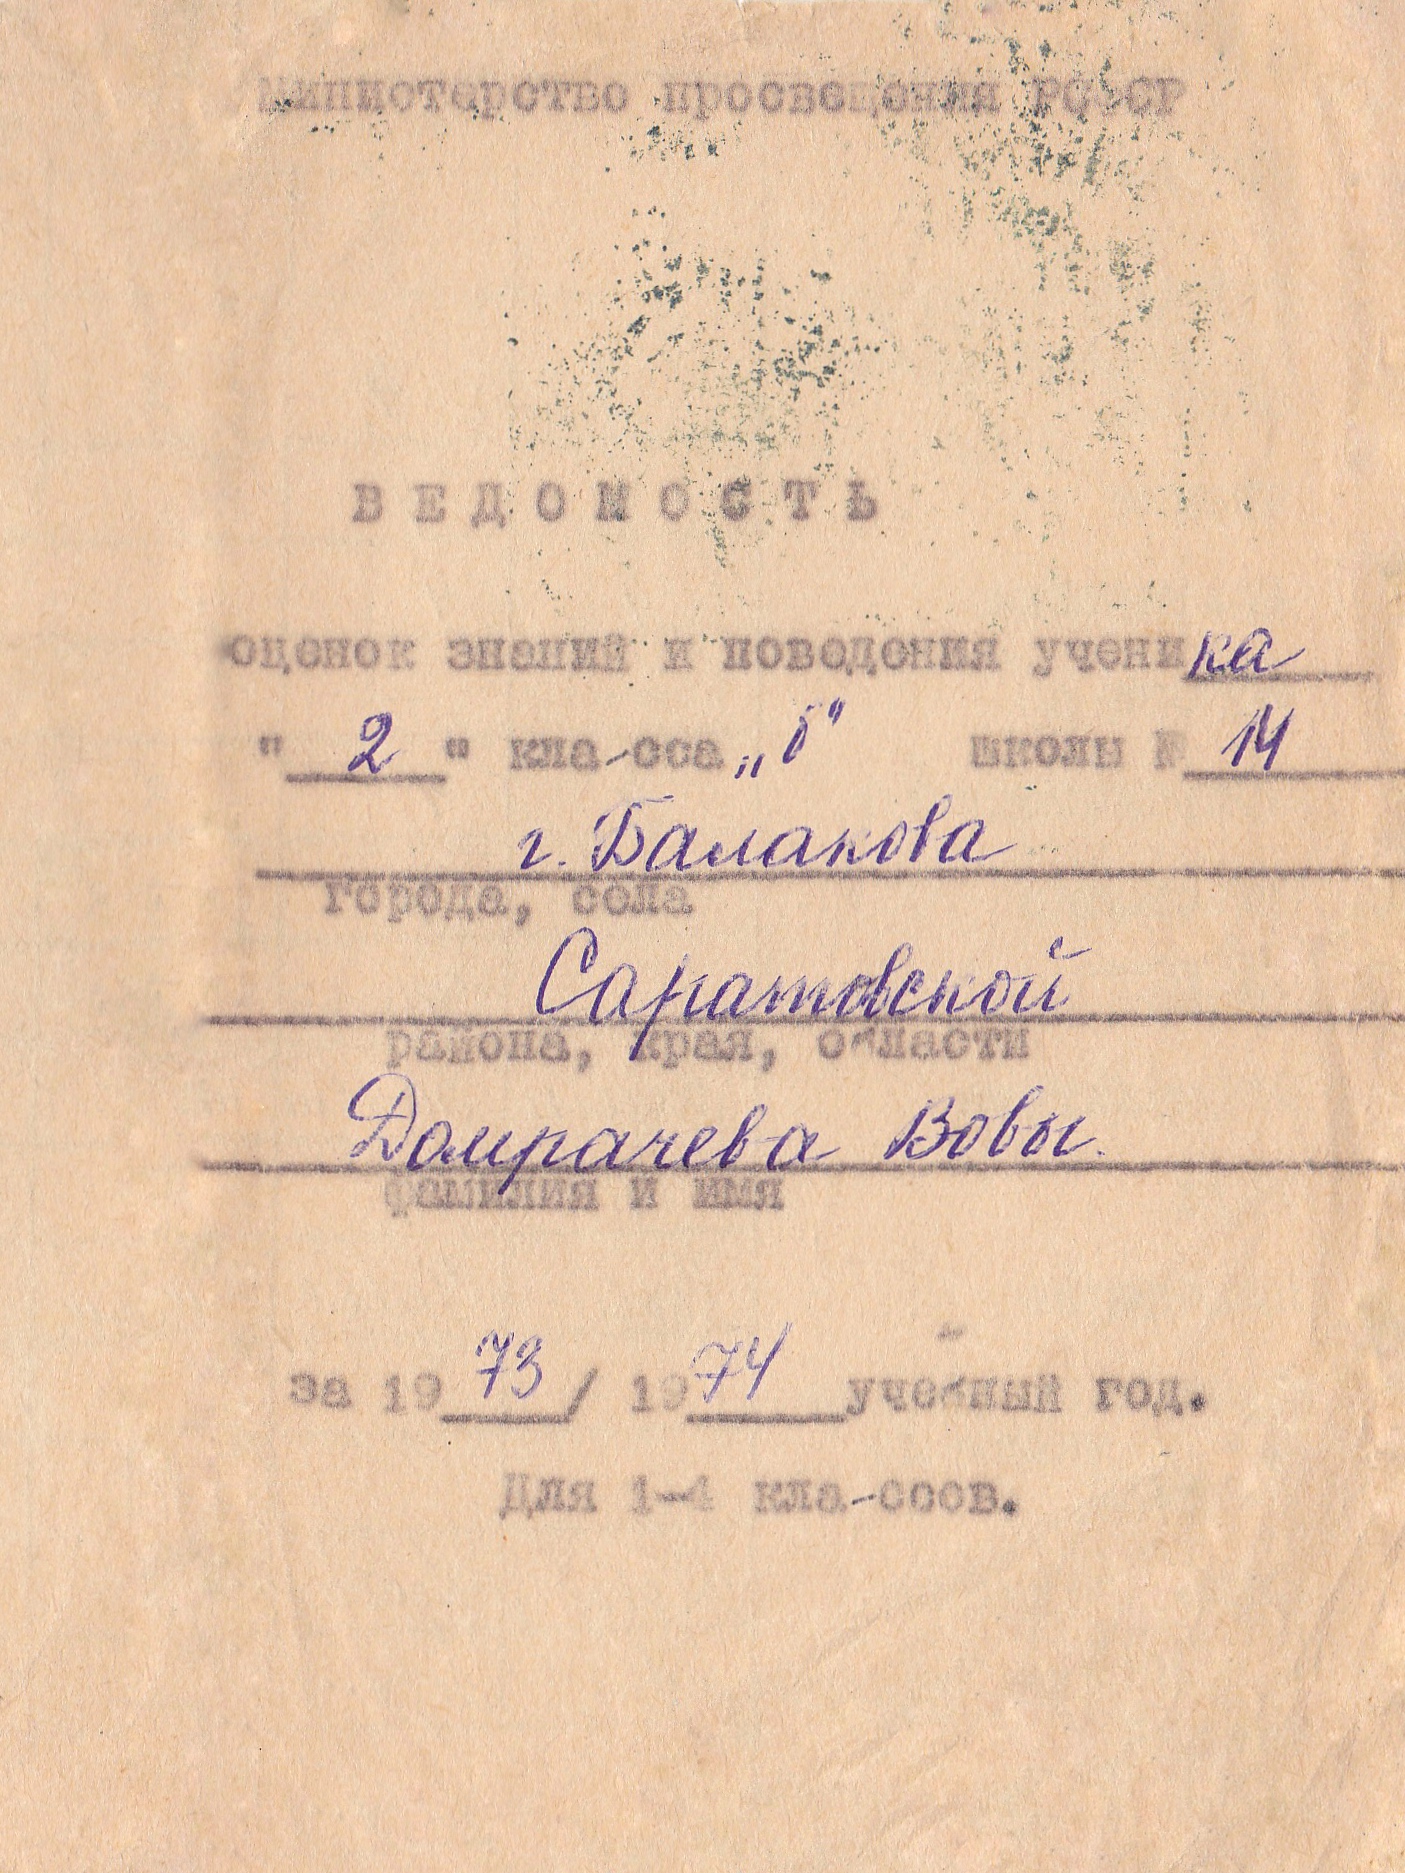 Министерство просвещения РСФСР
ВЕДОМОСТЬ
оценок знаний и поведения ученика
"2" кла-сса „б" школы № 14
г. Балакова
города, села
Саратовской
района, края, области
Домрачева Вовы.
фамилия и имя
за 1973/ 1974 учебный год.
Для 1-4 кла-ссов.